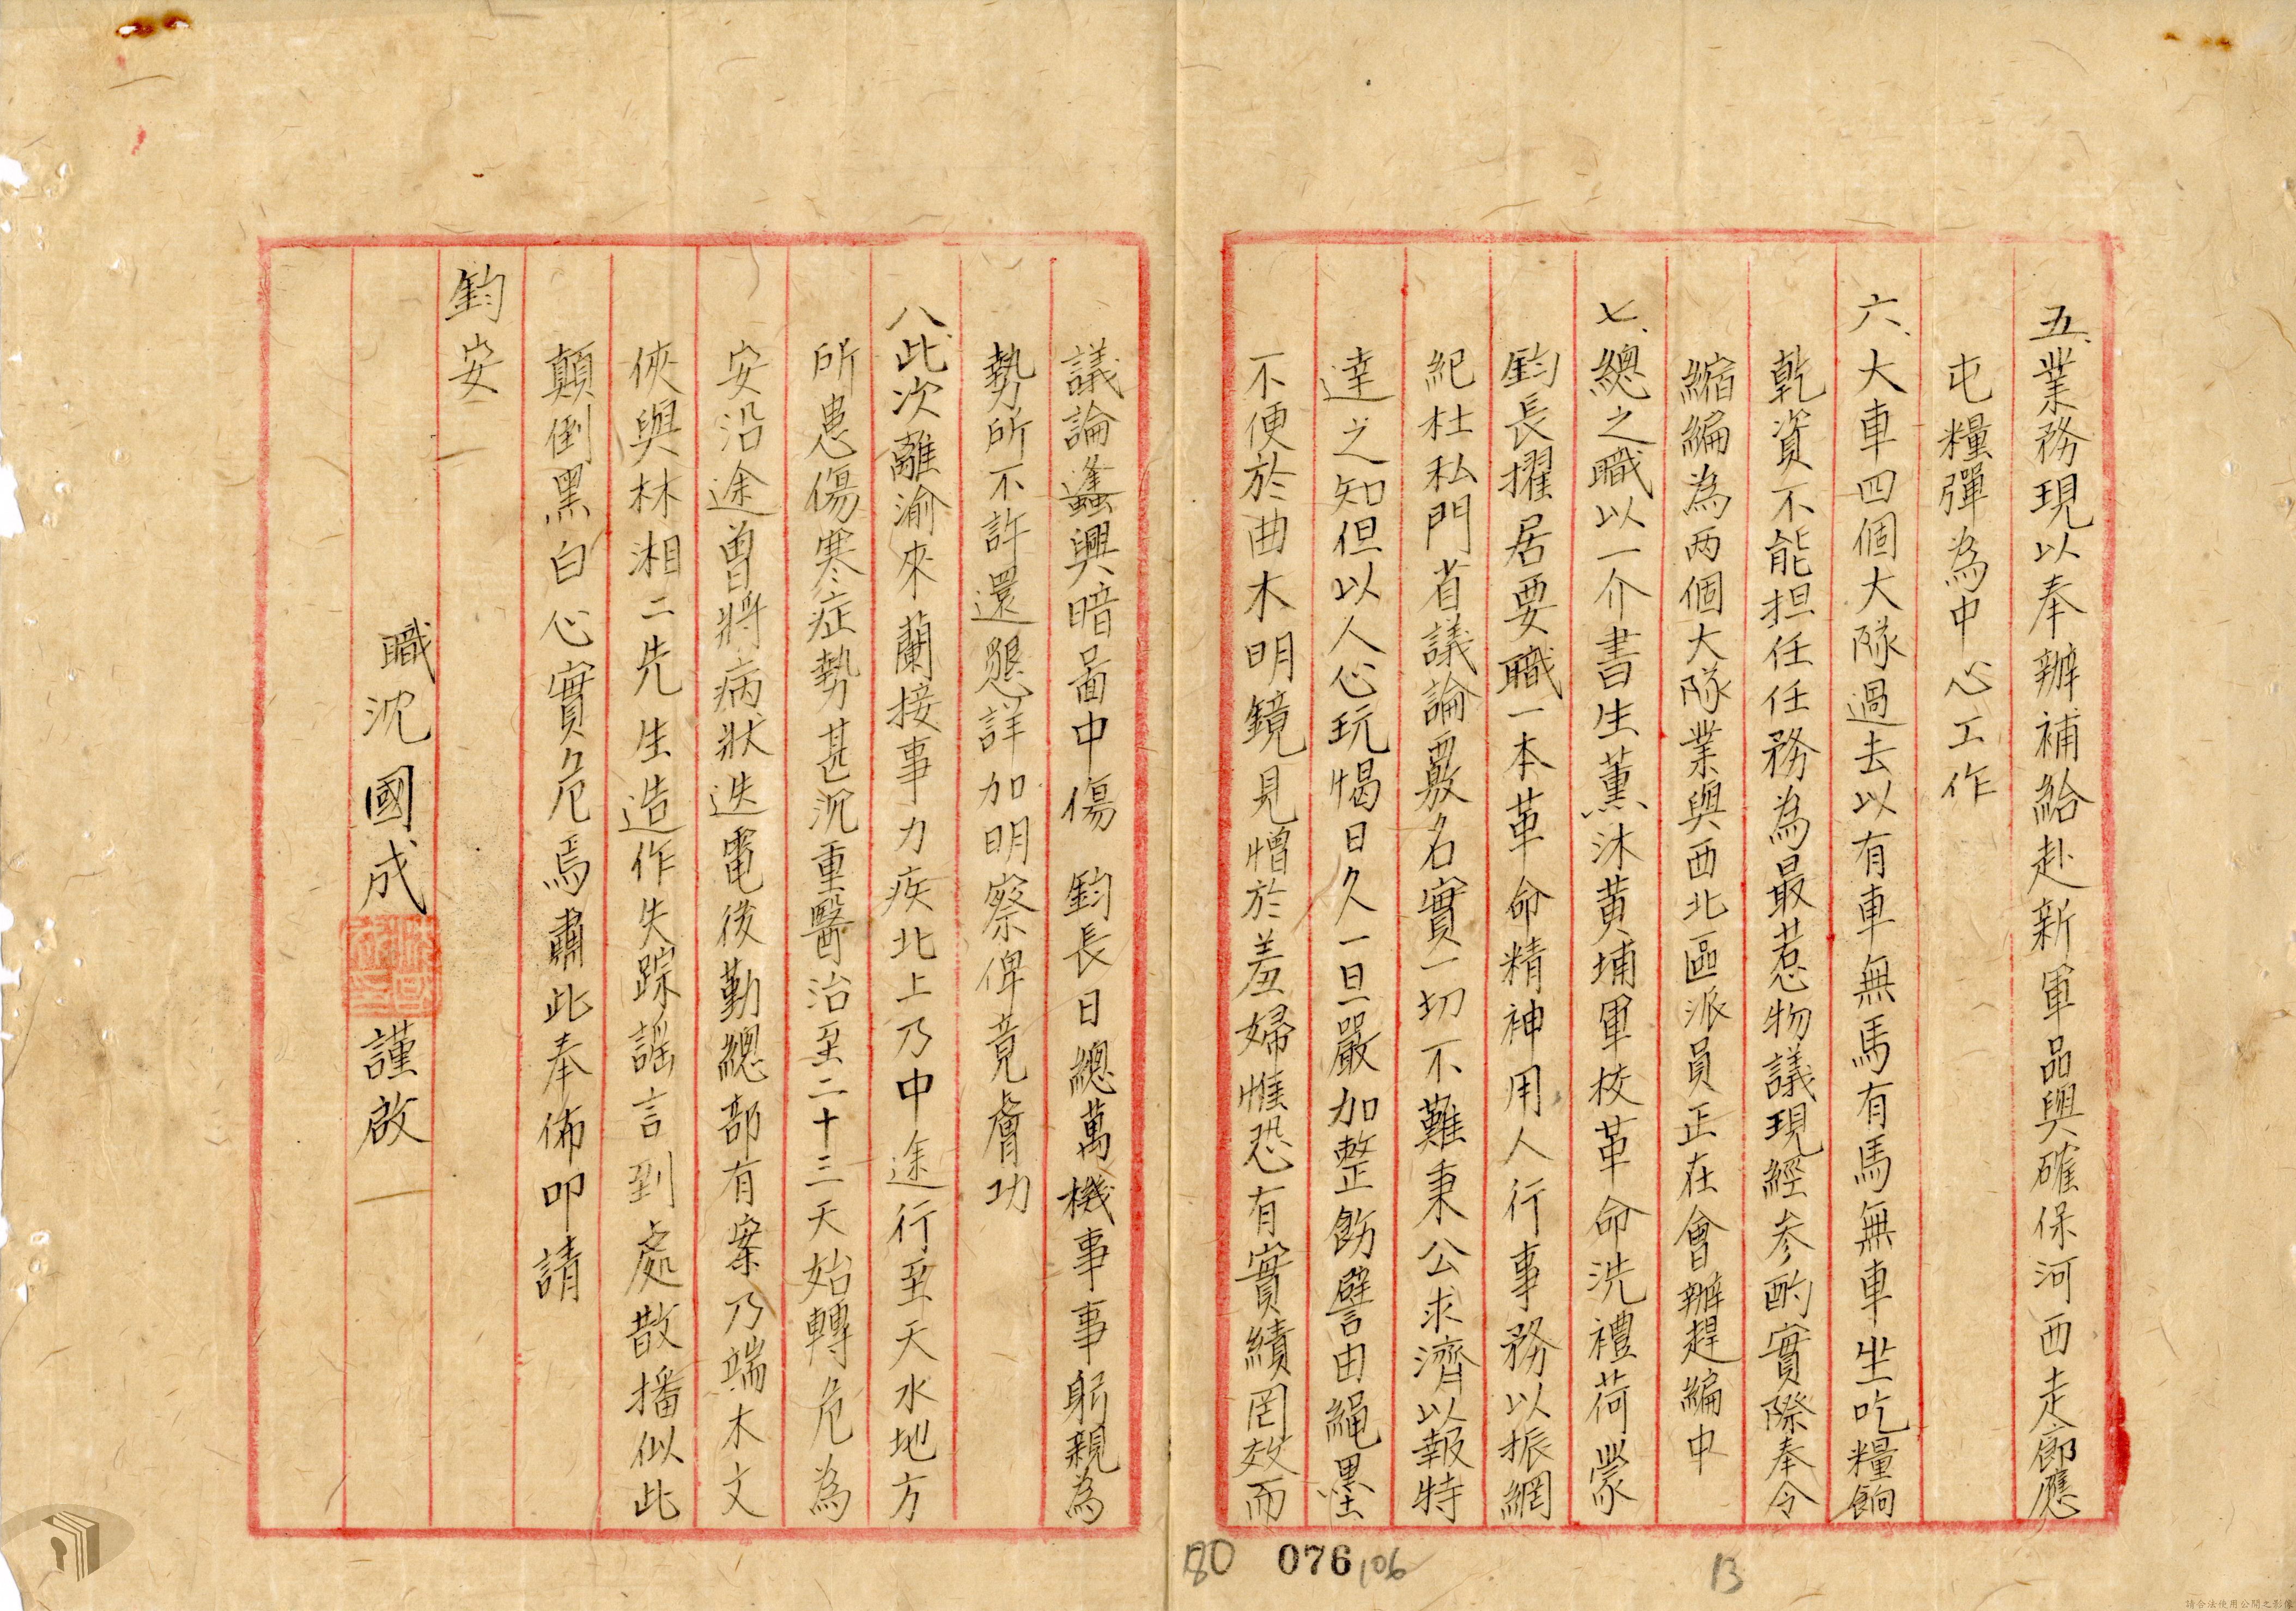 五、業務現以奉辦補給赴新軍品與確保河西走廊應
屯糧彈為中心工作
六、大車四個大隊過去以有車無馬有馬無車坐吃糧餉
乾資不能担任任務為最惹物議現經参酌實際奉令
縮編為两個大隊業與西北區派員正在會辦趕編中
七、總之職以一介書生薰沐黃埔軍校革命洗禮荷蒙
鈞長擢居要職一本革命精神用人行事務以振網
紀杜私門省議論覈名實一切不難秉公求濟以報特
達之知但以人心玩愒日久一旦嚴加整飭譬由繩墨
不便於曲木明鏡見憎於羞婦惟恐有實績罔效而
議論蠭興暗啚中傷 鈞長日總萬機事事躬親為
勢所不許還懇詳加明察俾竟膚功
八、此次離渝來蘭接事力疾北上乃中途行至天水地方
所患傷寒症勢甚沉重醫治至二十三天始轉危為
安沿途曾將病狀迭電後勤總部有案乃端木文
俠與林湘二先生造作失踪謡言到處散播似此
顛倒黑白心實危焉肅此奉佈叩請
鈞安
職沈國成 謹啟
80 076 106
13
請合法使用公開之影像